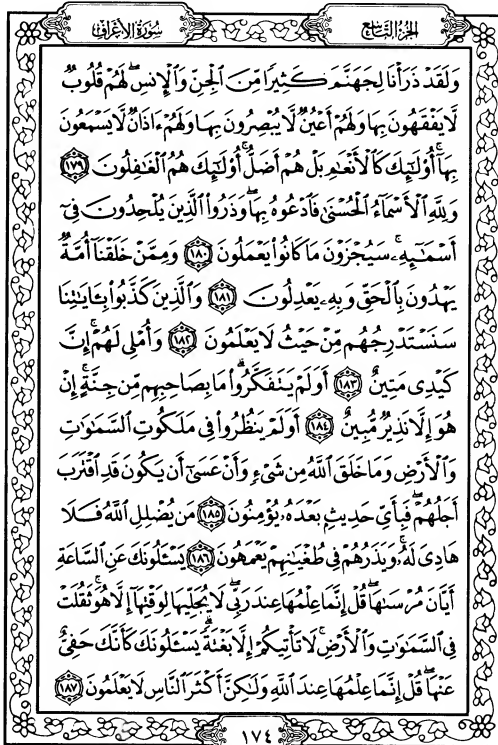 سُورَةُ الأَعْرَافِ
الجُزءُ التَّاسِعُ
وَلَقَدْ ذَرَأْنَا لِجَهَنَّمَ كَثِيرًا مِّنَ ٱلْجِنِّ وَٱلْإِنسِ ۖ لَهُمْ قُلُوبٌ
لَّا يَفْقَهُونَ بِهَا وَلَهُمْ أَعْيُنٌ لَّا يُبْصِرُونَ بِهَا وَلَهُمْ ءَاذَانٌ لَّا يَسْمَعُونَ
بِهَآ ۚ أُو۟لَـٰٓئِكَ كَٱلْأَنْعَـٰمِ بَلْ هُمْ أَضَلُّ ۚ أُو۟لَـٰٓئِكَ هُمُ ٱلْغَـٰفِلُونَ ١٧٩
وَلِلَّهِ ٱلْأَسْمَآءُ ٱلْحُسْنَىٰ فَٱدْعُوهُ بِهَا ۖ وَذَرُوا۟ ٱلَّذِينَ يُلْحِدُونَ فِىٓ
أَسْمَـٰٓئِهِۦ ۚ سَيُجْزَوْنَ مَا كَانُوا۟ يَعْمَلُونَ ١٨٠ وَمِمَّنْ خَلَقْنَآ أُمَّةٌ
يَهْدُونَ بِٱلْحَقِّ وَبِهِۦ يَعْدِلُونَ ١٨١ وَٱلَّذِينَ كَذَّبُوا۟ بِـَٔايَـٰتِنَا
سَنَسْتَدْرِجُهُم مِّنْ حَيْثُ لَا يَعْلَمُونَ ١٨٢ وَأُمْلِى لَهُمْ ۚ إِنَّ
كَيْدِى مَتِينٌ ١٨٣ أَوَلَمْ يَتَفَكَّرُوا۟ ۗ مَا بِصَاحِبِهِم مِّن جِنَّةٍ ۚ إِنْ
هُوَ إِلَّا نَذِيرٌ مُّبِينٌ ١٨٤ أَوَلَمْ يَنظُرُوا۟ فِى مَلَكُوتِ ٱلسَّمَـٰوَٰتِ
وَٱلْأَرْضِ وَمَا خَلَقَ ٱللَّهُ مِن شَىْءٍ وَأَنْ عَسَىٰٓ أَن يَكُونَ قَدِ ٱقْتَرَبَ
أَجَلُهُمْ ۖ فَبِأَىِّ حَدِيثٍۭ بَعْدَهُۥ يُؤْمِنُونَ ١٨٥ مَن يُضْلِلِ ٱللَّهُ فَلَا
هَادِىَ لَهُۥ ۚ وَيَذَرُهُمْ فِى طُغْيَـٰنِهِمْ يَعْمَهُونَ ١٨٦ يَسْـَٔلُونَكَ عَنِ ٱلسَّاعَةِ
أَيَّانَ مُرْسَىٰهَا ۖ قُلْ إِنَّمَا عِلْمُهَا عِندَ رَبِّى ۖ لَا يُجَلِّيهَا لِوَقْتِهَآ إِلَّا هُوَ ۚ ثَقُلَتْ
فِى ٱلسَّمَـٰوَٰتِ وَٱلْأَرْضِ ۚ لَا تَأْتِيكُمْ إِلَّا بَغْتَةً ۗ يَسْـَٔلُونَكَ كَأَنَّكَ حَفِىٌّ
عَنْهَا ۖ قُلْ إِنَّمَا عِلْمُهَا عِندَ ٱللَّهِ وَلَـٰكِنَّ أَكْثَرَ ٱلنَّاسِ لَا يَعْلَمُونَ ١٨٧
١٧٤